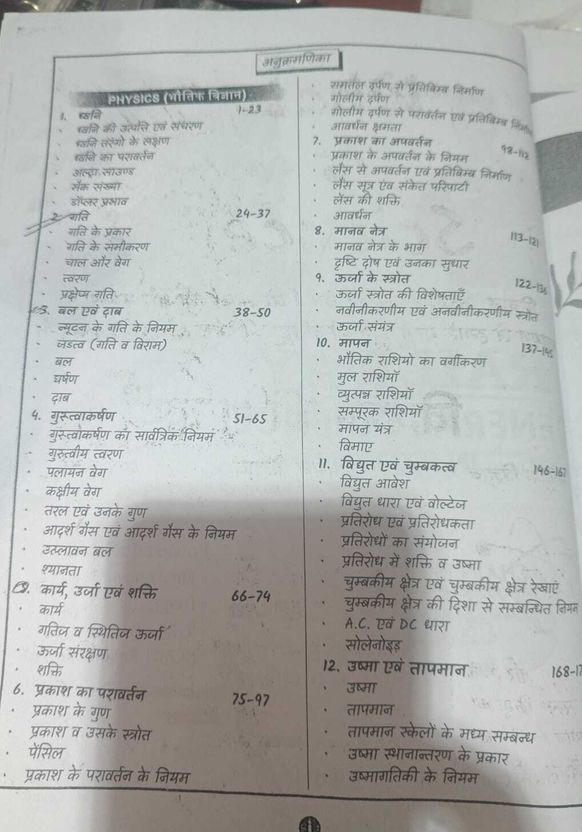 अनुक्रमणिका
PHYSICS (भौतिक विज्ञान)
1. ध्वनि 1-23
ध्वनि की उत्पत्ति एवं संचरण
ध्वनि तरंगो के लक्षण
ध्वनि का परावर्तन
अल्ट्रा साउण्ड
मैक संख्या
डॉप्लर प्रभाव
2. गति 24-37
गति के प्रकार
गति के समीकरण
चाल और वेग
त्वरण
प्रक्षेप्य गति
3. बल एवं दाब 38-50
न्यूटन के गति के नियम
जडत्व (गति व विराम)
बल
घर्षण
दाब
4. गुरूत्वाकर्षण 51-65
गुरूत्वाकर्षण का सार्वत्रिक नियम
गुरुत्वीय त्वरण
पलायन वेग
कक्षीय वेग
तरल एवं उनके गुण
आदर्श गैस एवं आदर्श गैस के नियम
उत्प्लावन बल
श्यानता
5. कार्य, उर्जा एवं शक्ति 66-74
कार्य
गतिज व स्थितिज ऊर्जा
ऊर्जा संरक्षण
शक्ति
6. प्रकाश का परावर्तन 75-97
प्रकाश के गुण
प्रकाश व उसके स्त्रोत
पेंसिल
प्रकाश के परावर्तन के नियम
समतल दर्पण से प्रतिबिम्ब निर्माण
गोलीय दर्पण
गोलीय दर्पण से परावर्तन एवं प्रतिबिम्ब
आवर्धन क्षमता
7. प्रकाश का अपवर्तन 98-112
प्रकाश के अपवर्तन के नियम
लैंस से अपवर्तन एवं प्रतिबिम्ब निर्माण
लैंस सूत्र एंव संकेत परिपाटी
लैंस की शक्ति
आवर्धन
8. मानव नेत्र 113-121
मानव नेत्र के भाग
दृष्टि दोष एवं उनका सुधार
9. ऊर्जा के स्त्रोत 122-136
ऊर्जा स्त्रोत की विशेषताएँ
नवीनीकरणीय एवं अनवीनीकरणीय स्त्रोत
ऊर्जा संयंत्र
10. मापन 137-145
भौतिक राशियो का वर्गीकरण
मुल राशियॉ
व्युत्पन्न राशियॉ
सम्पूरक राशियॉ
मापन यंत्र
विमाए
11. विद्युत एवं चुम्बकत्व 146-167
विद्युत आवेश
विद्युत धारा एवं वोल्टेज
प्रतिरोध एवं प्रतिरोधकता
प्रतिरोधों का संयोजन
प्रतिरोध में शक्ति व उष्मा
चुम्बकीय क्षेत्र एवं चुम्बकीय क्षेत्र रेखाएं
चुम्बकीय क्षेत्र की दिशा से सम्बन्धित नियम
A.C. एवं DC धारा
सोलेनोइड
12. उष्मा एवं तापमान 168-17
उष्मा
तापमान
तापमान स्केलों के मध्य सम्बन्ध
उष्मा स्थानान्तरण के प्रकार
उष्मागतिकी के नियम